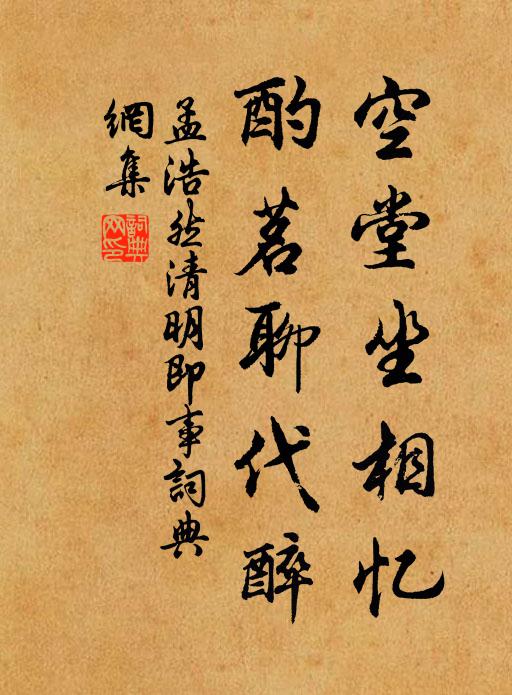 空堂坐相忆
酌茗聊代醉
孟浩然清明即事詞典
網集
詞典網印